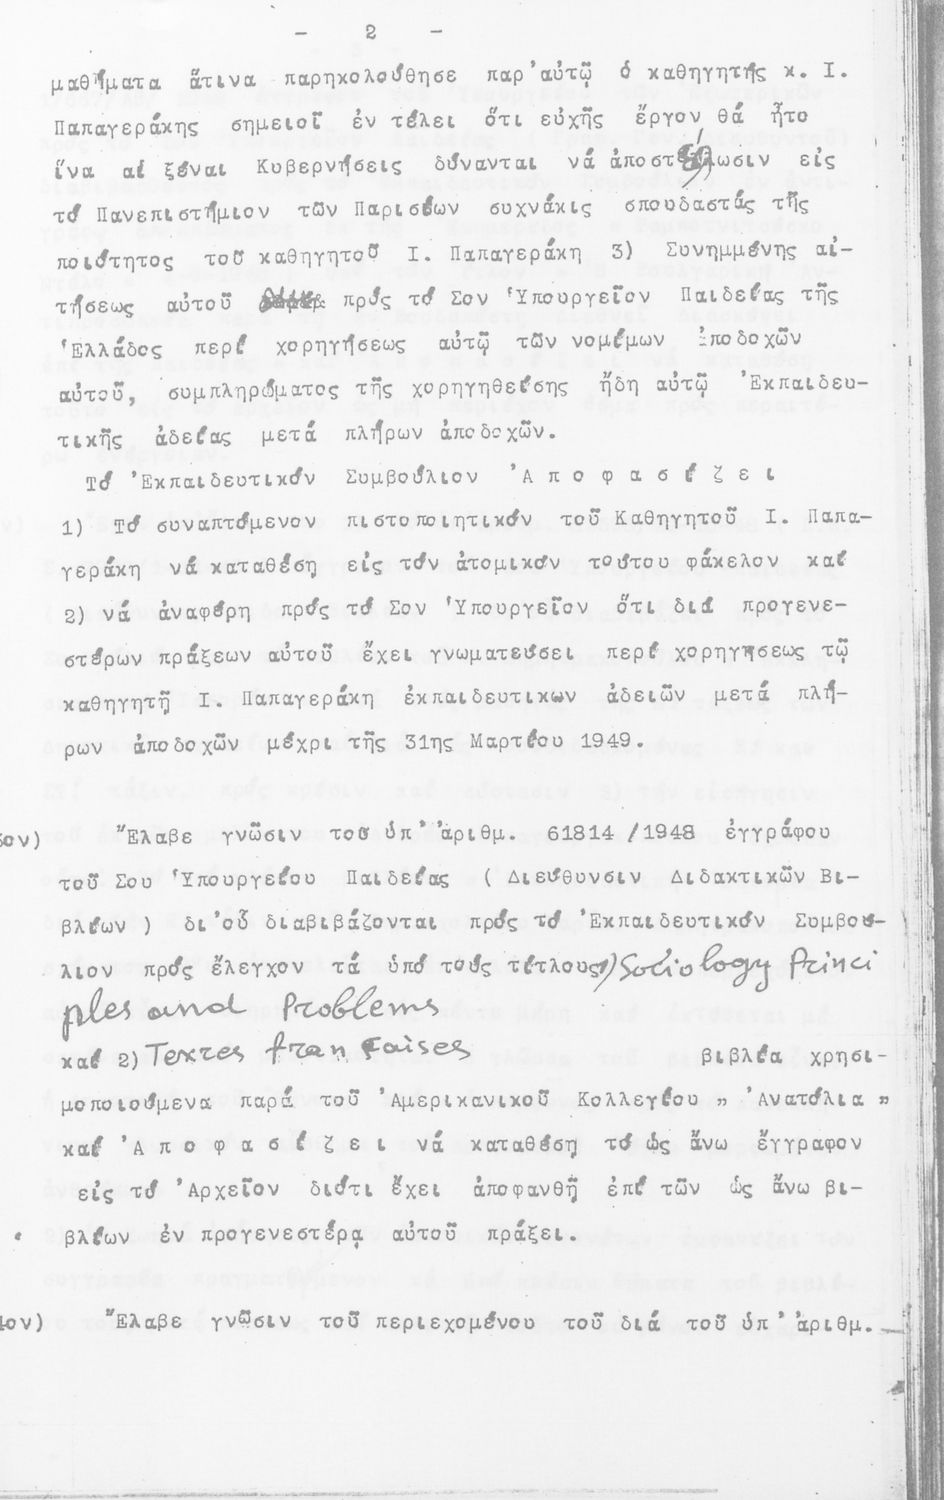 - 2 -
μαθήματα ἅτινα παρηκολούθησε παρ'αὐτῷ ὁ καθηγητής κ. Ι.
Παπαγεράκης σημειοῖ ἐν τέλει ὅτι εὐχῆς ἔργον θά ἦτο
ἵνα αἱ ξέναι Κυβερνήσεις δύνανται νά ἀποστέλωσιν εἰς
τό Πανεπιστήμιον τῶν Παρισίων συχνάκις σπουδαστάς τῆς
ποιότητος τοῦ καθηγητοῦ Ι. Παπαγεράκη 3) Συνημμένης αἰ-
τήσεως αὐτοῦ πρός τό Σον Ὑπουργεῖον Παιδείας τῆς
Ἑλλάδος περί χορηγήσεως αὐτῷ τῶν νομίμων ἀποδοχῶν
αὐτοῦ, συμπληρώματος τῆς χορηγηθείσης ἤδη αὐτῷ Ἐκπαιδευ-
τικῆς ἀδείας μετά πλήρων ἀποδοχῶν.
Τό Ἐκπαιδευτικόν Συμβούλιον Ἀ π ο φ α σ ί ζ ε ι
1) Τό συναπτόμενον πιστοποιητικόν τοῦ Καθηγητοῦ Ι. Παπα-
γεράκη νά καταθέση εἰς τόν ἀτομικόν τούτου φάκελον καί
2) νά ἀναφέρη πρός τό Σον Ὑπουργεῖον ὅτι διά προγενε-
στέρων πράξεων αὐτοῦ ἔχει γνωματεύσει περί χορηγήσεως τῷ
καθηγητῇ Ι. Παπαγεράκη ἐκπαιδευτικων ἀδειῶν μετά πλή-
ρων ἀποδοχῶν μέχρι τῆς 31ης Μαρτίου 1949.
3ον) Ἔλαβε γνῶσιν τοῦ ὑπ'ἀριθμ. 61814/1948 ἐγγράφου
τοῦ Σου Ὑπουργείου Παιδείας ( Διεύθυνσιν Διδακτικῶν Βι-
βλίων ) δι'οὗ διαβιβάζονται πρός τό Ἐκπαιδευτικόν Συμβού-
λιον πρός ἔλεγχον τά ὑπό τούς τίτλους 1) Sociology Princi
ples and Problems
καί 2) Textes françaises βιβλία χρησι-
μοποιούμενα παρά τοῦ Ἀμερικανικοῦ Κολλεγίου " Ἀνατόλια "
καί Ἀ π ο φ α σ ί ζ ε ι νά καταθέση τό ὡς ἄνω ἔγγραφον
εἰς τό Ἀρχεῖον διότι ἔχει ἀποφανθῆ ἐπί τῶν ὡς ἄνω βι-
βλίων ἐν προγενεστέρᾳ αὐτοῦ πράξει.
4ον) Ἔλαβε γνῶσιν τοῦ περιεχομένου τοῦ διά τοῦ ὑπ'ἀριθμ.